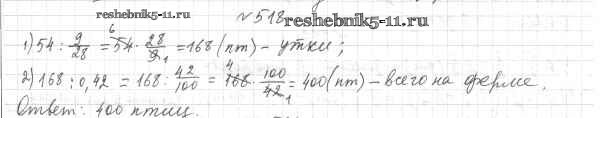 reshebnik5-11.ru №518 reshebnik5-11.ru
1) 54 : 9/28 = 54 · 28/9 = 168 (пт) – утки;
2) 168 : 0,42 = 168 · 42/100 = 168 · 100/42 = 400 (пт) – всего на ферме.
Ответ: 400 птиц.